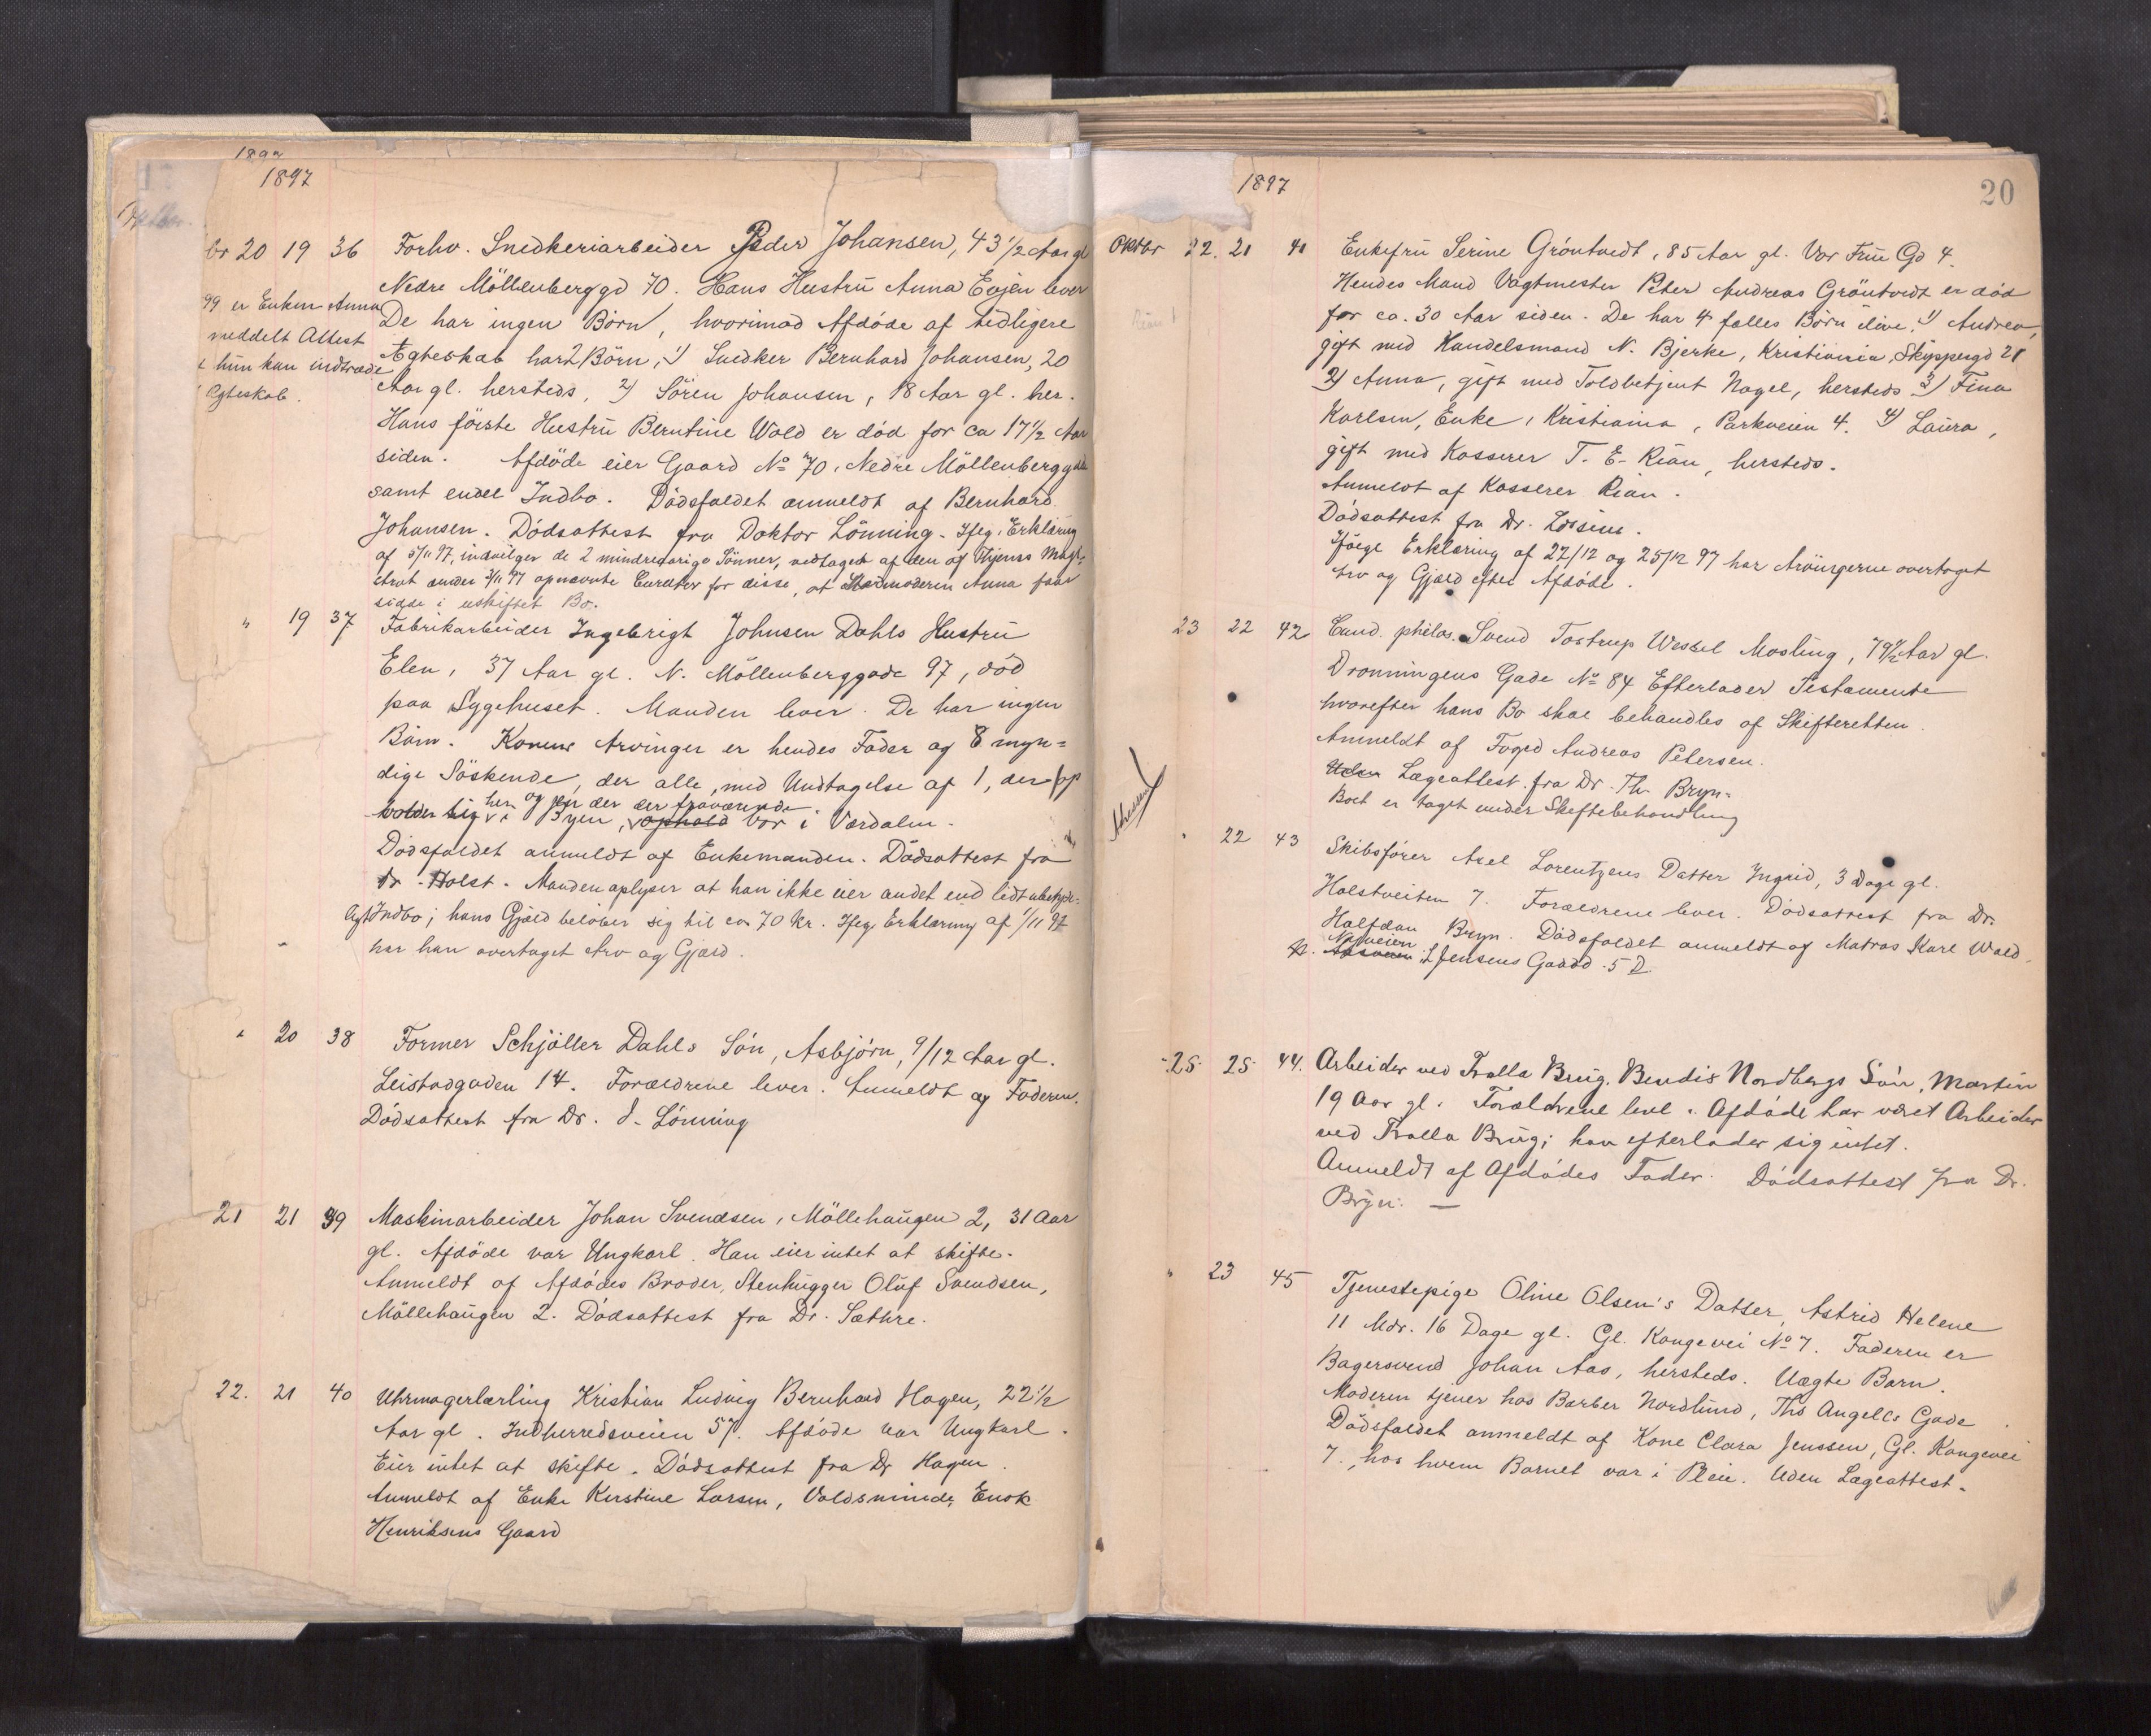 1897
1897
br 20 19 36 Forhv. Snedkeriarbeider Peder Johansen, 43 1/2 Aar gl
Nedre Möllenberggd 70. Hans Hustru Anna Evjen lever
99 er Enken Anna
meddelt Attest
hun kan indtræde
Egteskab.
De har ingen Börn, hvorimod Afdöde af tidligere
Ægteskab har 2 Börn, 1) Snedker Bernhard Johansen, 20
Aar gl. hersteds, 2) Sören Johansen, 18 Aar gl. her.
Hans förste Hustru Berntine Wold er död for ca 17 1/2 Aar
siden. Afdöde eier Gaard No 70, Nedre Möllenberggde
samt endel Indbo. Dödsfaldet anmeldt af Bernhard
Johansen. Dödsattest fra Doktor Lönning. Ifög. Erklæring
af 5/11 97, indvilger de 2 mindreaarige Sönner, vedtaget af den af Byens Magi-
strat under 3/11 97 opnævnte Curator for disse, at Stedmoderen Anna faar
sidde i uskiftet Bo.
" 19 37 Fabrikarbeider Ingebrigt Johnsen Dahls Hustru
Elen, 37 Aar gl. N. Möllenberggade 97, död
paa Sygehuset. Manden lever. De har ingen
Börn. Konens Arvinger er hendes Fader og 8 myn=
dige Söskende, der alle, med Undtagelse af 1, der op
holder sig her i Byen, og der er fraværende ophold bor i Værdalen.
Dödsfaldet anmeldt af Enkemanden. Dödsattest fra
Dr. Holst. Manden oplyser at han ikke eier andet end lidt ubetyde-
ligt Indbo; hans Gjæld belöber sig til ca 70 kr. Ifög. Erklæring af 1/11 97
har han overtaget Arv og Gjæld.
" 20 38 Former Schjöller Dahls Sön, Asbjörn, 9/12 Aar gl.
Leistadgaden 14. Forældrene lever. Anmeldt af Faderen.
Dödsattest fra Dr. J. Lönning
21 21 39 Maskinarbeider Johan Svendsen, Möllehaugen 2, 31 Aar
gl. Afdöde var Ungkarl. Han eier intet at skifte.
Anmeldt af Afdödes Broder, Stenhugger Oluf Svendsen,
Möllehaugen 2. Dödsattest fra Dr. Sæthre.
22. 21 40 Uhrmagerlærling Kristian Ludvig Bernhard Hagen, 22 1/2
Aar gl. Indherredsveien 57. Afdöde var Ungkarl.
Eier intet at skifte. Dödsattest fra Dr Hagen.
Anmeldt af Enke Kerstine Larsen, Voldsminde, Enok
Henriksens Gaard
1897
20
Oktbr 22. 21 41 Enkefru Serine Gröntvedt, 85 Aar gl. Vor Frue Gd 4.
Hendes Mand Vagtmester Peter Andreas Gröntvedt er död
for ca. 30 Aar siden. De har 4 fælles Börn ilive. 1) Andrea,
Rian!
gift med Handelsmand N. Bjerke, Kristiania, Skippergd 21
2) Anna, gift med Toldbetjent Nagel, hersteds 3) Fina
Karlsen, Enke, Kristiania, Parkveien 4. 4) Laura,
gift med Kasserer T. E. Rian, hersteds.
Anmeldt af Kasserer Rian.
Dödsattest fra Dr.
Ifölge Erklæring af 22/12 og 25/12 97 har Arvingerne overtaget
Arv og Gjæld efter Afdöde.
23 22 42 Cand. philos. Svend Tostrup Wessel Mosling, 79 1/2 Aar gl.
Dronningens Gade No 84 Efterlader Testamente
hvorefter hans Bo skal behandles af Skifteretten.
Anmeldt af Foged Andreas Petersen.
Uden Lægeattest fra Dr. Th. Bryn.
Boet er taget under Skiftebehandling
" 22 43 Skibsförer Axel Lorentzens Datter Ingrid, 3 Dage gl.
Holstveiten 7. Forældrene lever. Dödsattest fra Dr.
Halfdan Bryn. Dödsfaldet anmeldt af Matros Karl Wold,
Nyveien
N. L Jensens Gaard 5 D.
25 25 44. Arbeider ved Tralla Brug, Bendis Nordbergs Sön, Martin
19 Aar gl. Forældrene leve. Afdöde har været Arbeider
ved Tralla Brug; han efterlader sig intet.
Anmeldt af Afdödes Fader. Dödsattest fra Dr.
Bryn. —
" 23 45 Tjenestepige Oline Olsen's Datter, Astrid Helene
11 Mdr. 16 Dage gl. Gl. Kongevei No 7. Faderen er
Bagersvend Johan Aas, hersteds. Uægte Barn.
Moderen tjener hos Barber Nordlund, Ths Angells Gade.
Dödsfaldet anmeldt af Kone Clara Jenssen, Gl. Kongevei
7., hos hvem Barnet var i Pleie. Uden Lægeattest.